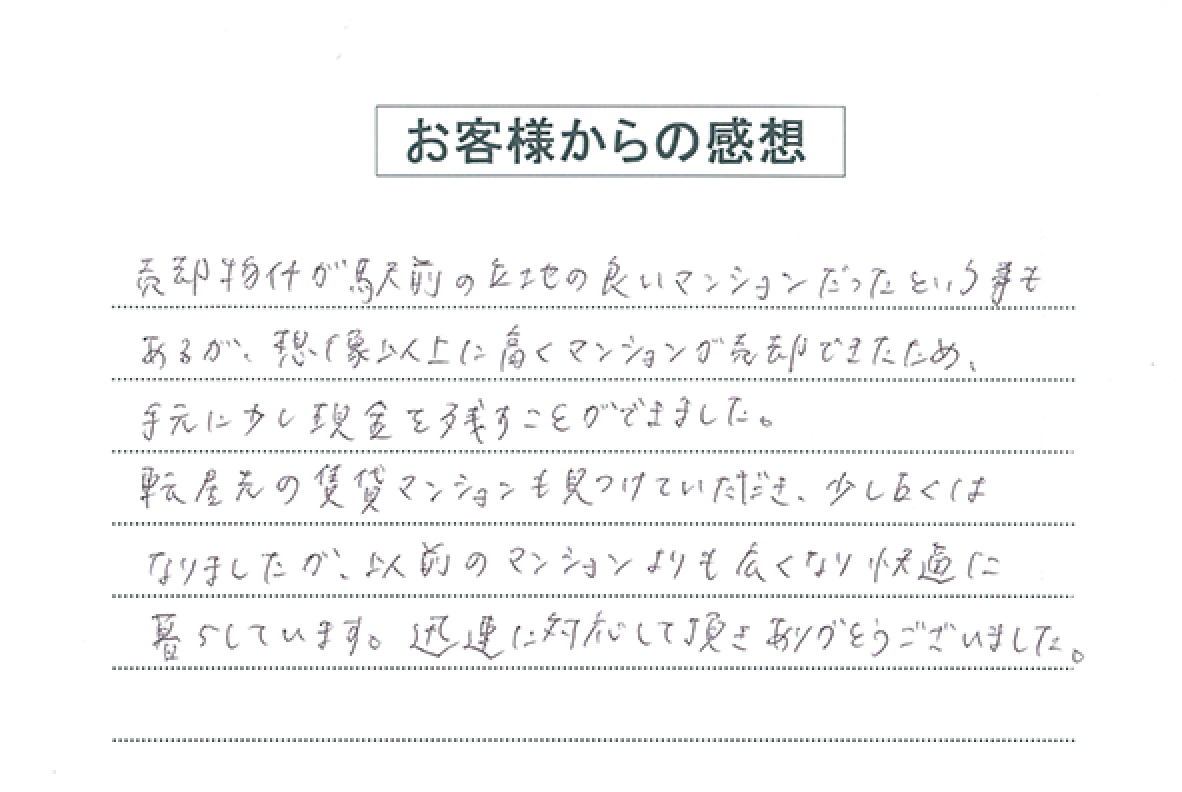 お客様からの感想
売却物件が駅前の立地の良いマンションだったという事も
あるが、想像以上に高くマンションが売却できたため、
手元に少し現金を残すことができました。
転居先の賃貸マンションも見つけていただき、少し古くは
なりましたが、以前のマンションよりも広くなり快適に
暮らしています。迅速に対応して頂きありがとうございました。